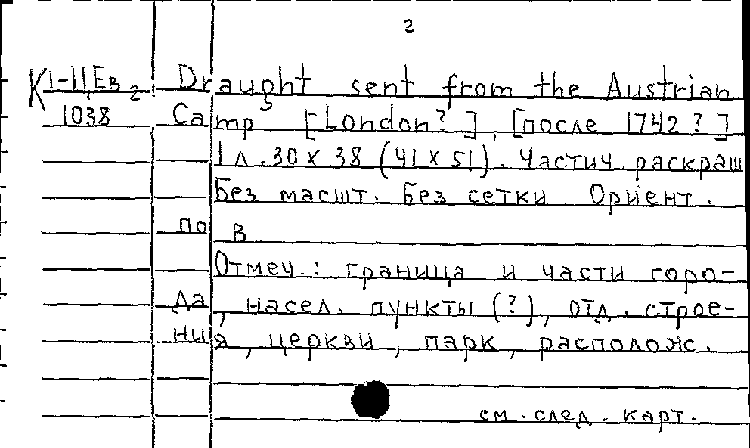 2
К 1-11,Ев 2 Draught sent from the Austrian
1038 Camp [London?], [после 1742?]
1 л. 30 x 38 (41 x 51). Частич. раскраш
Без масшт. Без сетки Ориент.
по В
Отмеч.: граница и части горо-
да, насел. пункты (?), отд. строе-
ния, церкви, парк, располож.
см. след. карт.